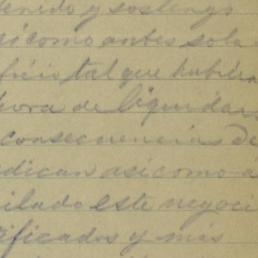 tenido y sostengo
asi como antes sola
tal que hubiera
hora de liquidar
consecuencias de
dican asi como a
ilado este negoci
ificados y mis